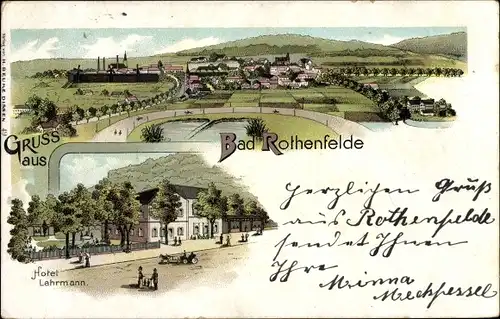 Gruss
aus
Bad Rothenfelde
Hotel
Lahrmann.
Herzlichen Gruß
aus Rothenfelde
sendet Ihnen
Ihre
Minna
Meckpessel